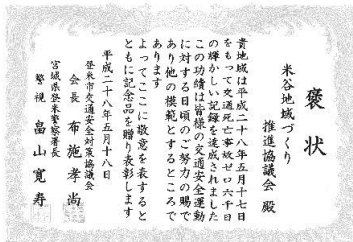 褒状
米谷地域づくり
推進協議会 殿
貴地域は平成二十八年五月十七日
をもって交通死亡事故ゼロ六千日
の輝かしい記録を達成されました
この功績は皆様の交通安全運動
に対する日頃のご努力の賜で
あり他の模範とするところで
あります
よってここに敬意を表すると
ともに記念品を贈り表彰します
平成二十八年五月十八日
登米市交通安全対策協議会
会長 布施孝尚
宮城県登米警察署長
警視 畠山寛寿